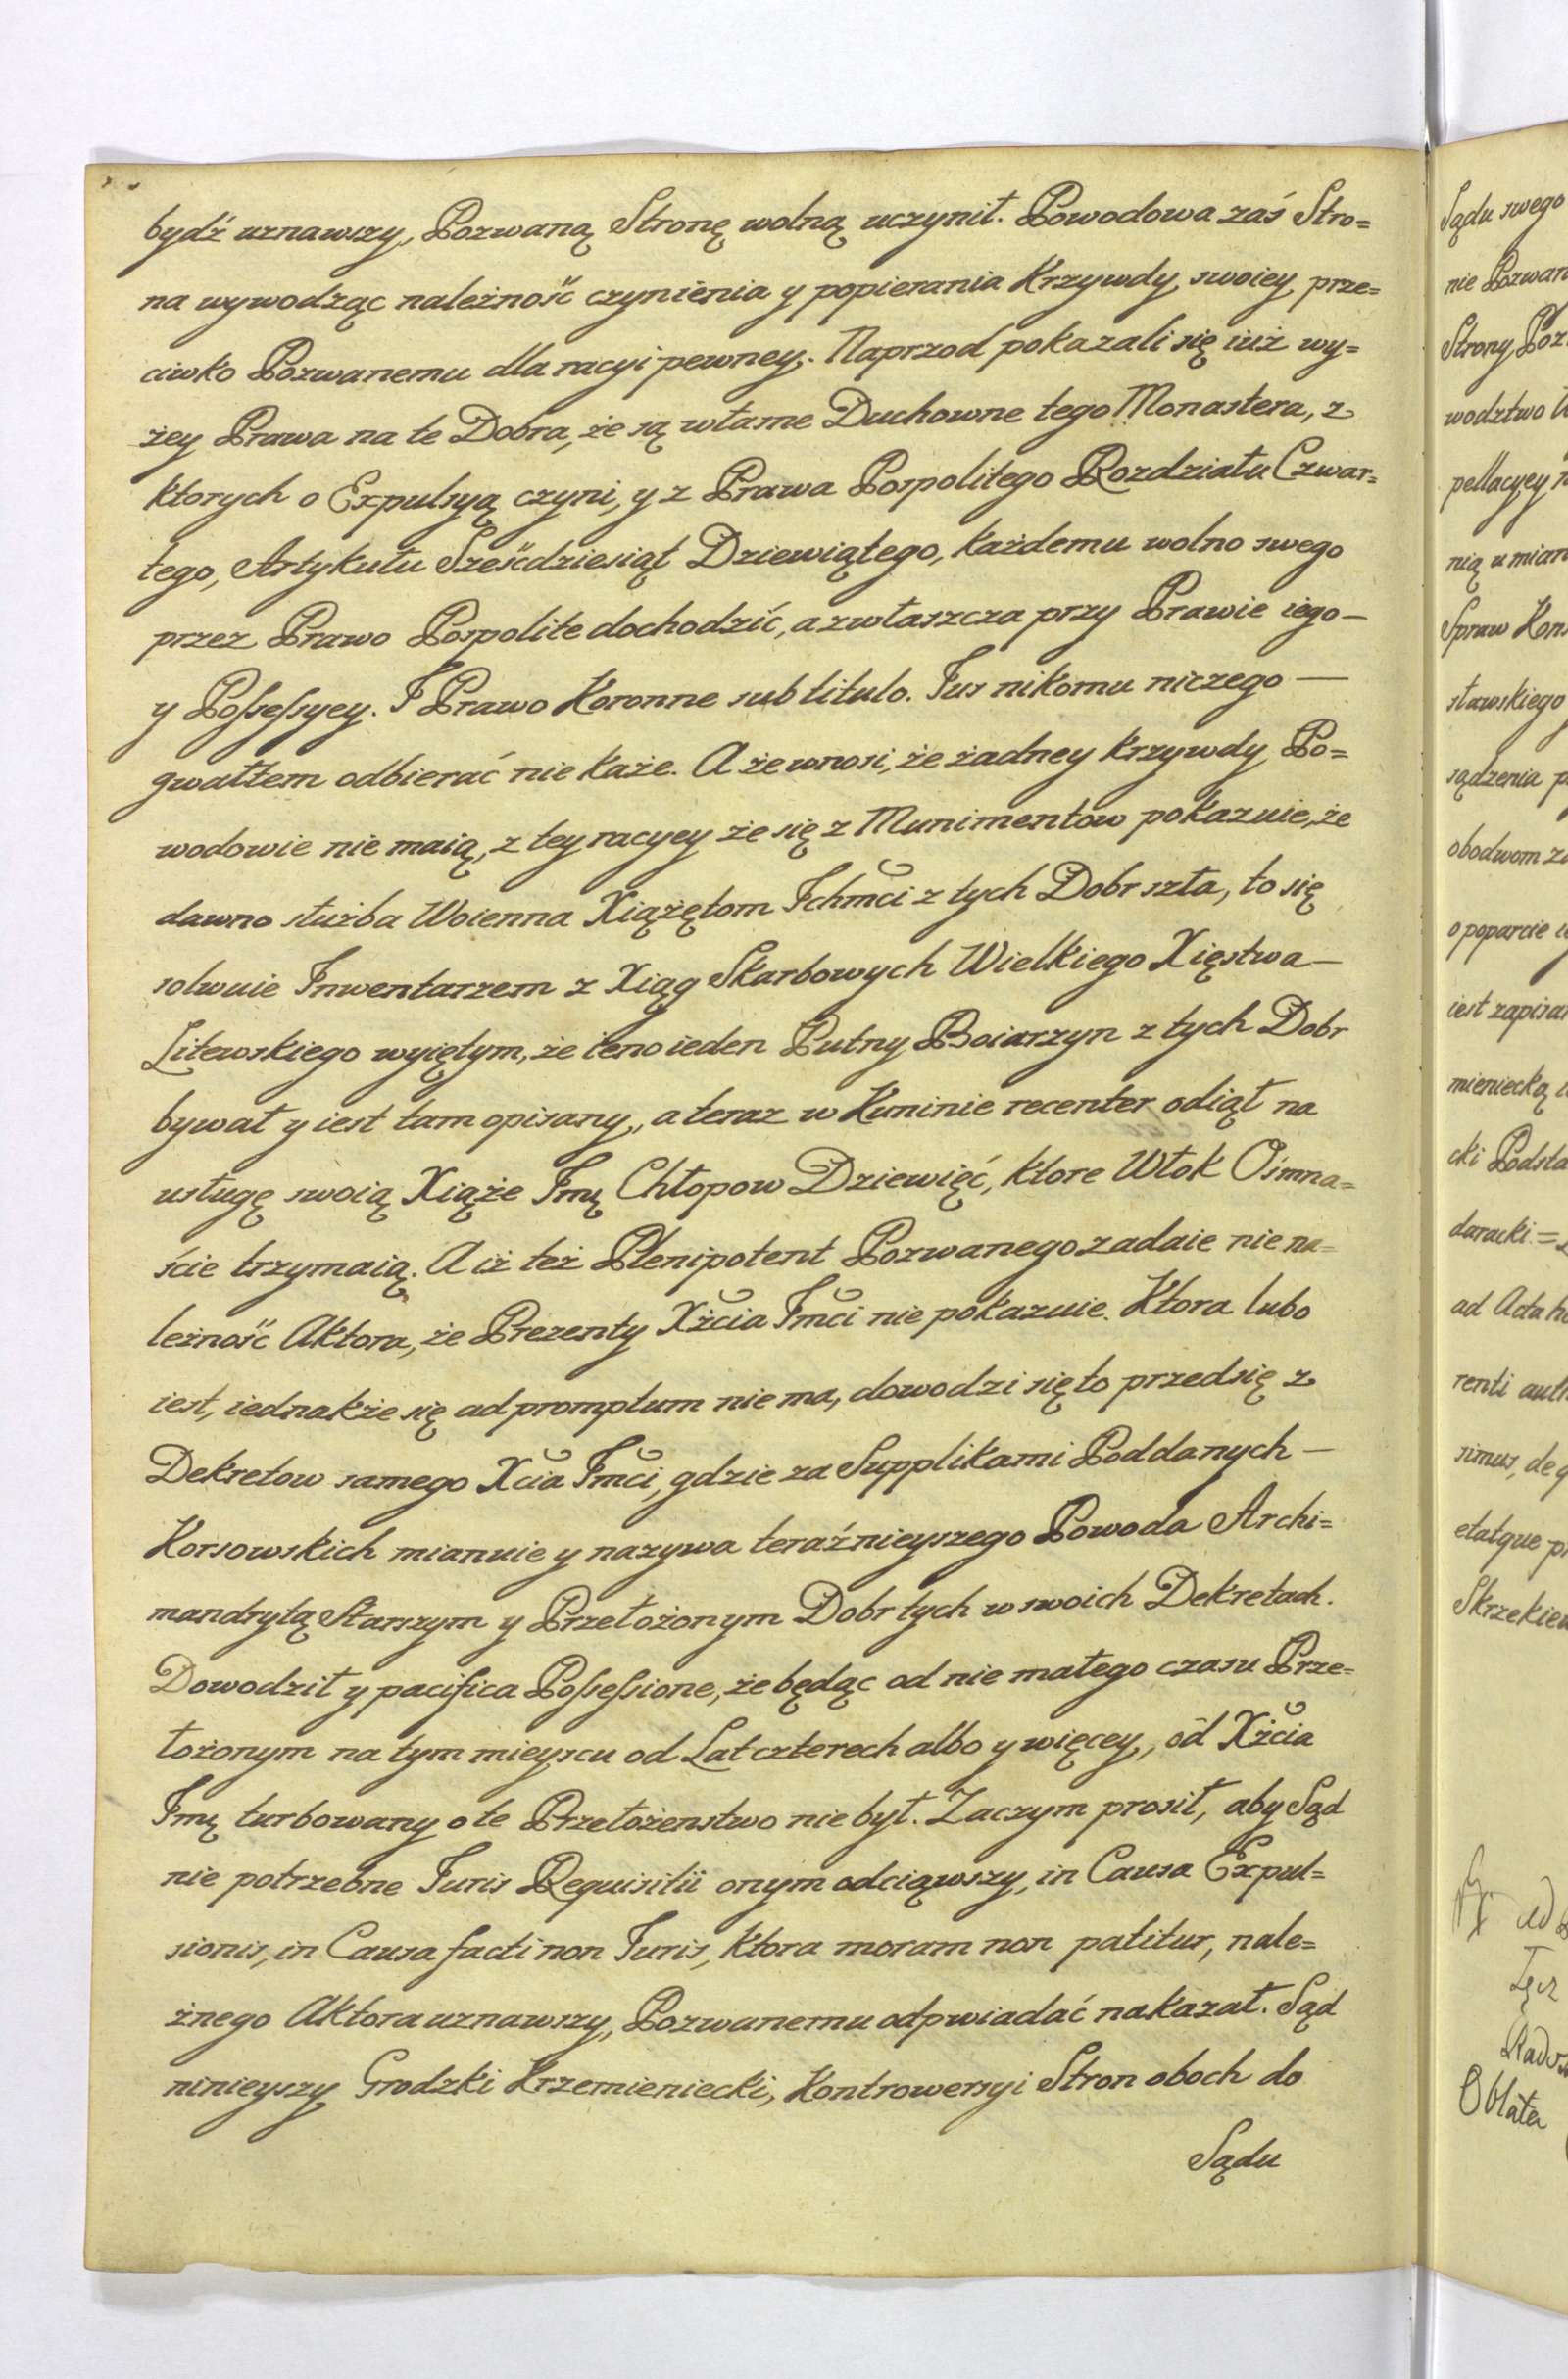 bydź uznawszy, Pozwaną Stronę wolną uczynił. Powodowa zaś Stro=
na wywodząc należność czynienia y popierania Krzywdy swoiey prze=
ciwko Pozwanemu dla racyi pewney. Naprzod pokazali się iuż wy=
żey Prawa na te Dobra, że są własne Duchowne tego Monastera, z
ktorych o Expulsyą czyni, y z Prawa Pospolitego Rozdziału Czwar=
tego, Artykułu Sześćdziesiąt Dziewiątego, każdemu wolno swego
przez Prawo Pospolite dochodzić, a zwłaszcza przy Prawie iego —
y Possessyey. I Prawo Koronne sub titulo. Jus nikomu niczego —
gwałtem odbierać nie każe. A że wnosi, że żadney krzywdy Po=
wodowie nie maią, z tey racyey że się z Munimentow pokazuie, że
dawno służba Woienna Xiążętom Ichmci z tych Dobr szła, to się
solwuie Inwentarzem z Xiąg Skarbowych Wielkiego Xięstwa —
Litewskiego wyiętym, że ieno ieden Putny Boiarzyn z tych Dobr
bywał y iest tam opisany, a teraz w Kuninie recenter odiął na
usługę swoią Xiąże Imę Chłopow Dziewięć, ktore Włok Ośmna=
ście trzymaią. A iż też Plenipotent Pozwanego zadaie nie na=
leżność Aktora, że Prezenty Xżcia Imci nie pokazuie. Ktora lubo
iest, iednakże się ad promptum nie ma, dowodzi się to przedsię z
Dekretow samego Xcia Imci, gdzie za Supplikami Poddanych —
Korsowskich mianuie y nazywa teraźnieyszego Powoda Archi=
mandrytą Starszym y Przełożonym Dobr tych w swoich Dekretach.
Dowodził y pacifica Possessione, że będąc od nie małego czasu Prze=
łożonym na tym mieyscu od Lat czterech albo y więcey, od Xżcia
Imę turbowany o te Przełożenstwo nie był. Zaczym prosił, aby Sąd
nie potrzebne Juris Requisitii onym odciąwszy, in Causa Expul=
sionis, in Causa facti non Juris, ktora moram non patitur, nale=
żnego Aktora uznawszy, Pozwanemu odpwiadać nakazał. Sąd
ninieyszy Grodzki Krzemieniecki, Kontrowersyi Stron oboch do
Sądu
Sądu swego
nie Pozwan
Strony Poz
wodztwo
pellacyey
nią umian
Spraw Kon
sławskiego
sądzenia
obodwom
o poparcie
iest zapisa
mieniecką
cki Podsta
daracki =
ad Acta
renti
simus, de
etatque
Skrzekie
Oblata